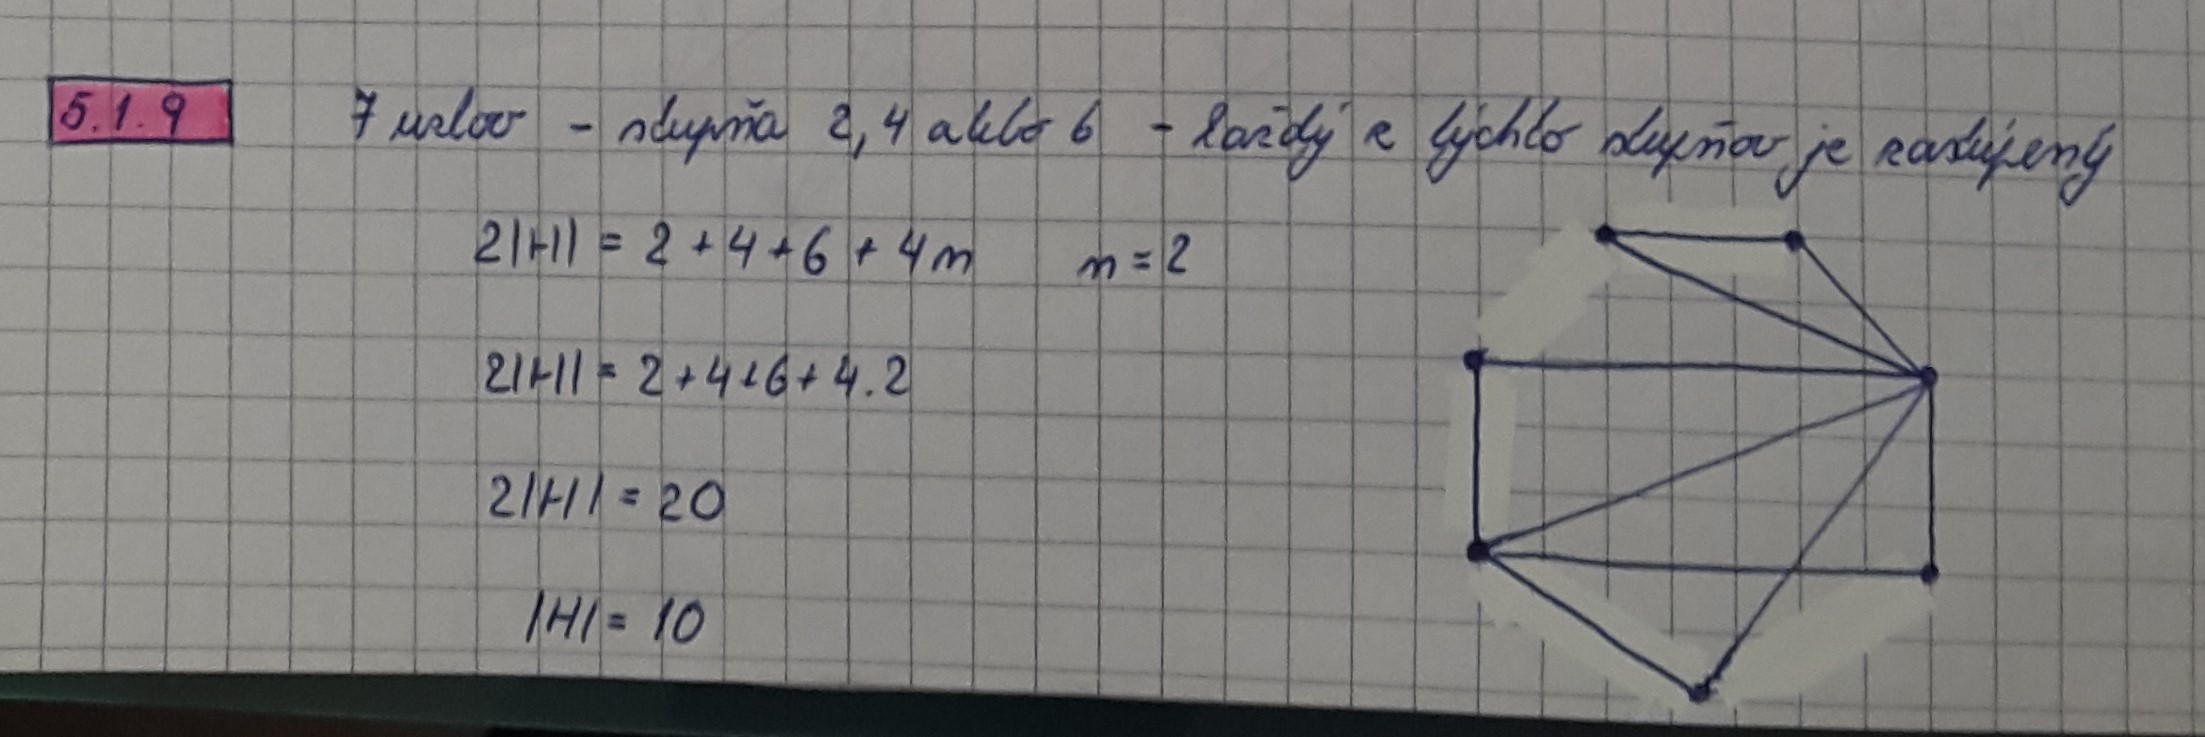 5.1.9 7 uzlov - stupňa 2, 4 alebo 6 - každý z týchto stupňov je zastúpený
2|H| = 2 + 4 + 6 + 4n n = 2
2|H| = 2 + 4 + 6 + 4.2
2|H| = 20
|H| = 10